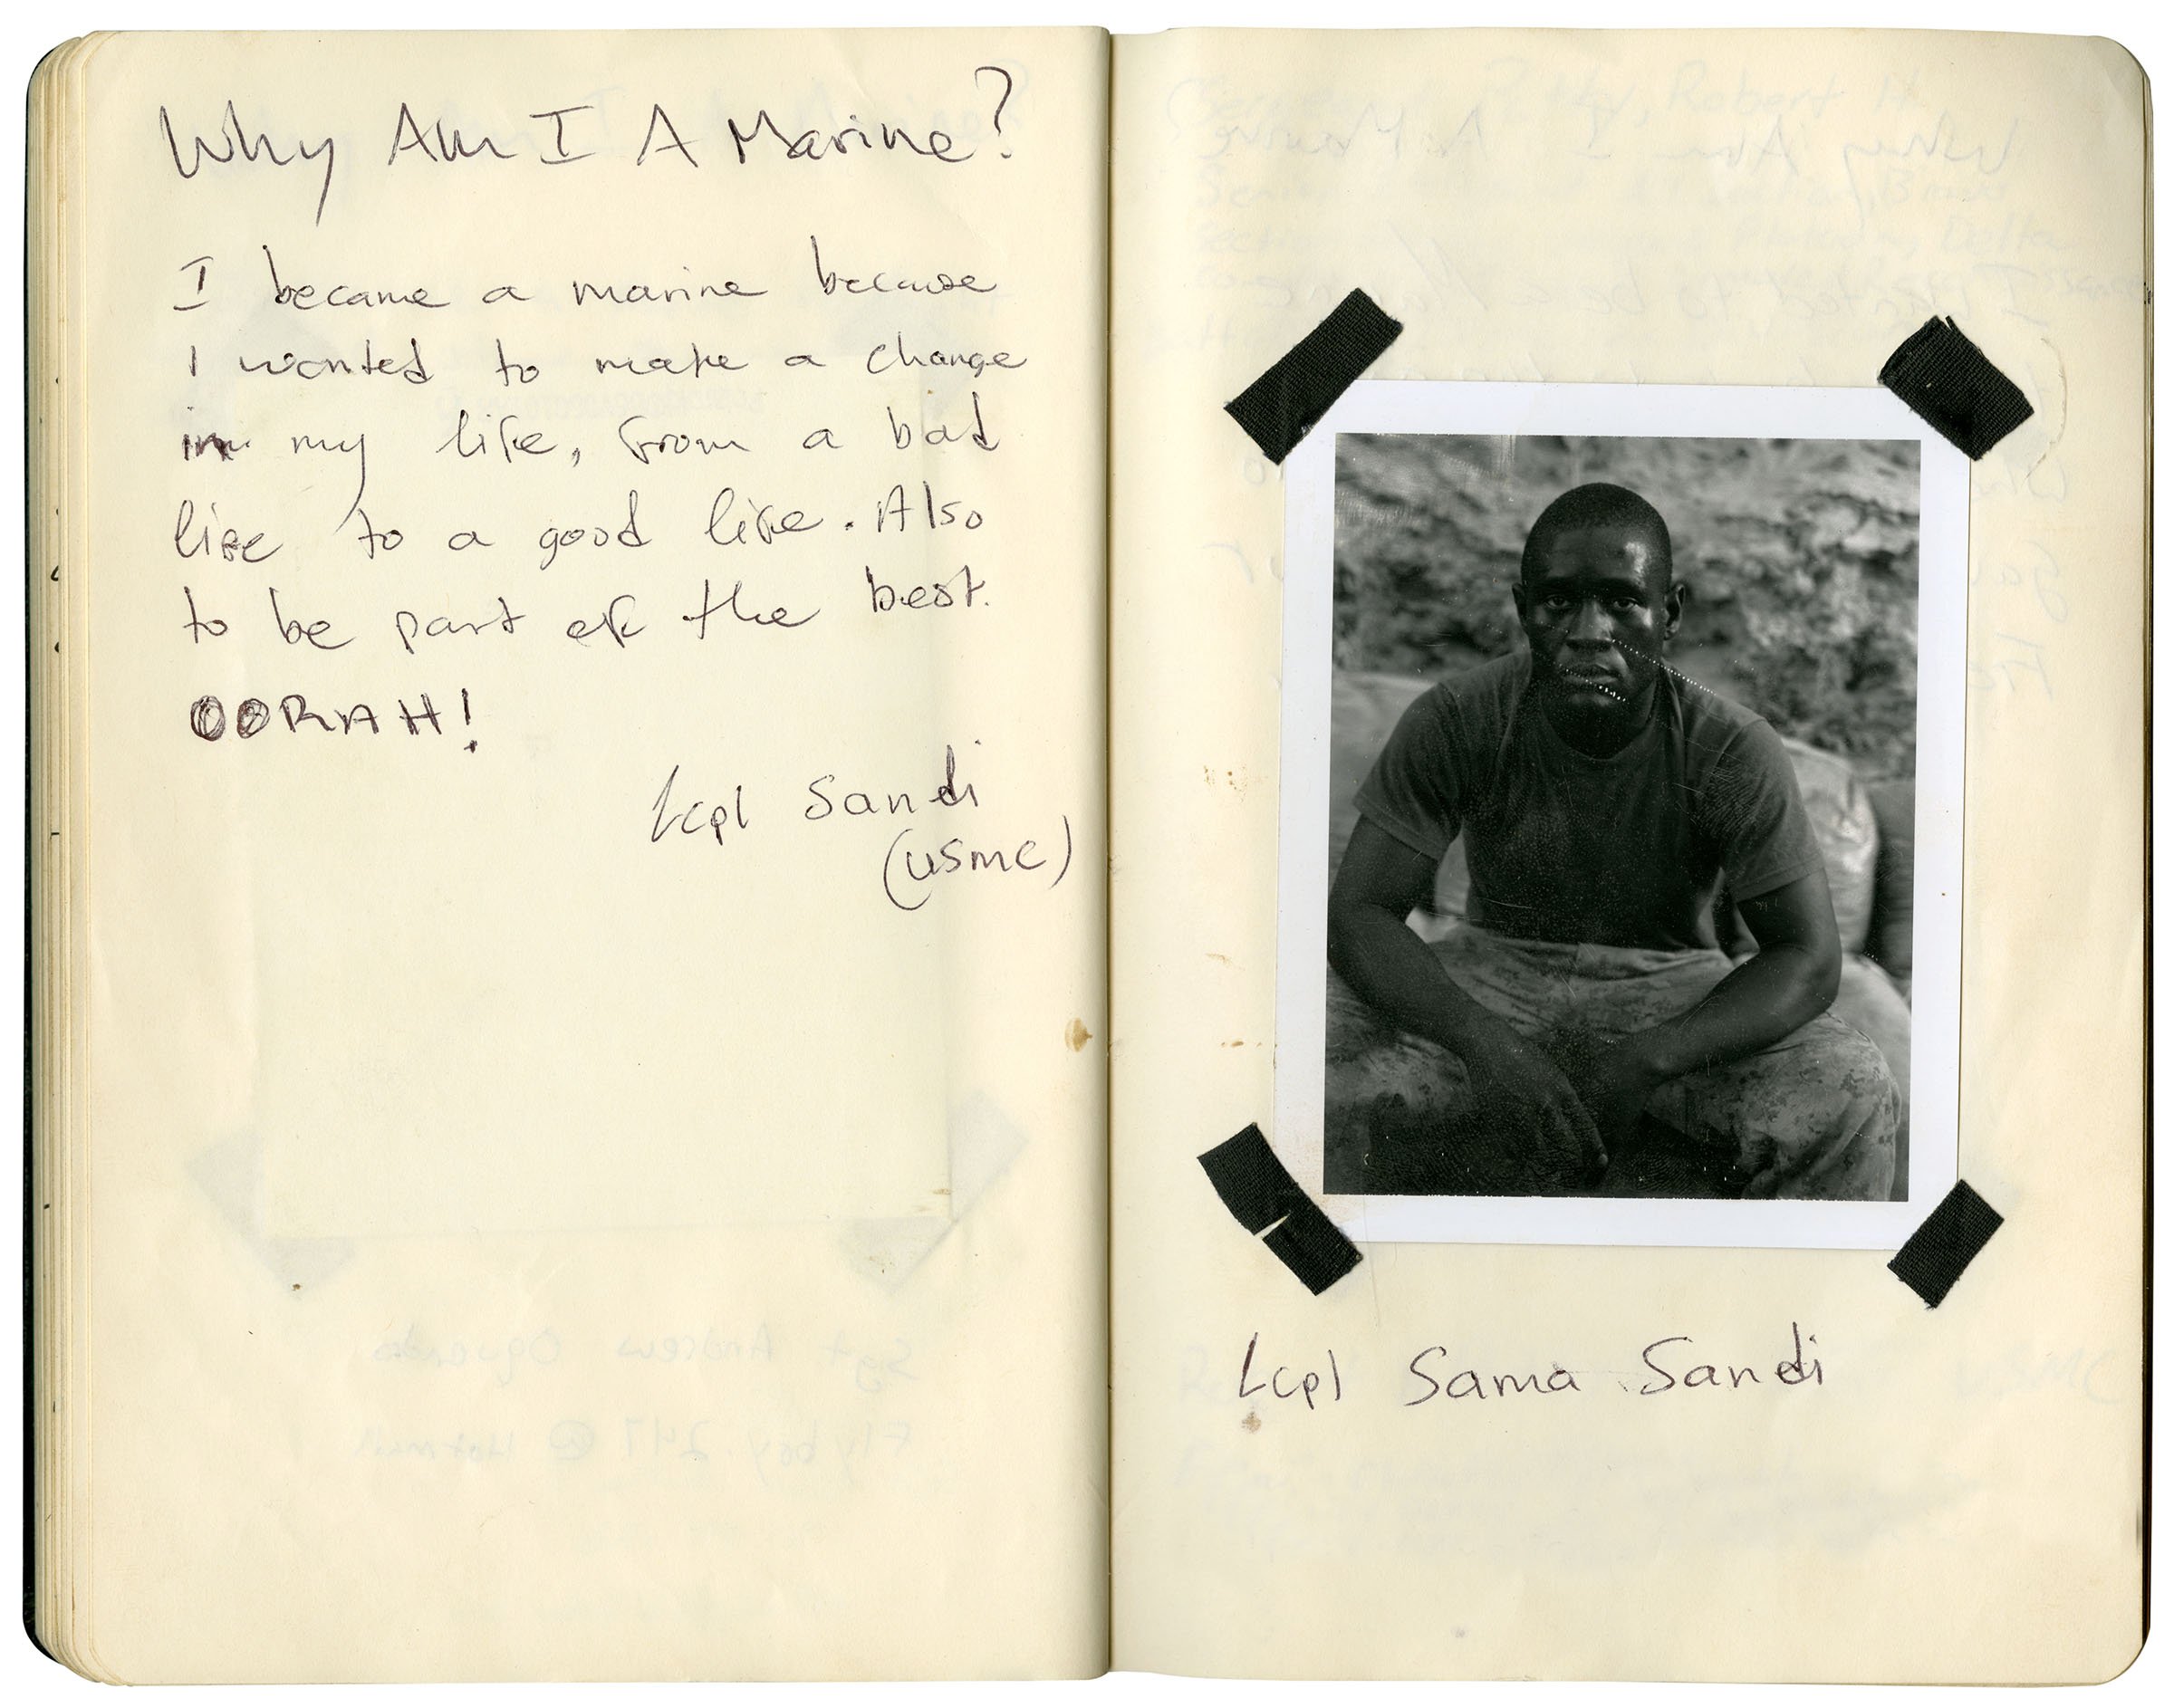 Why Am I A Marine?
I became a marine because
I wanted to make a change
in my life, from a bad
life to a good life. Also
to be part of the best.
OORAH!
Lcpl Sandi
(USMC)
Lcpl Sama Sandi